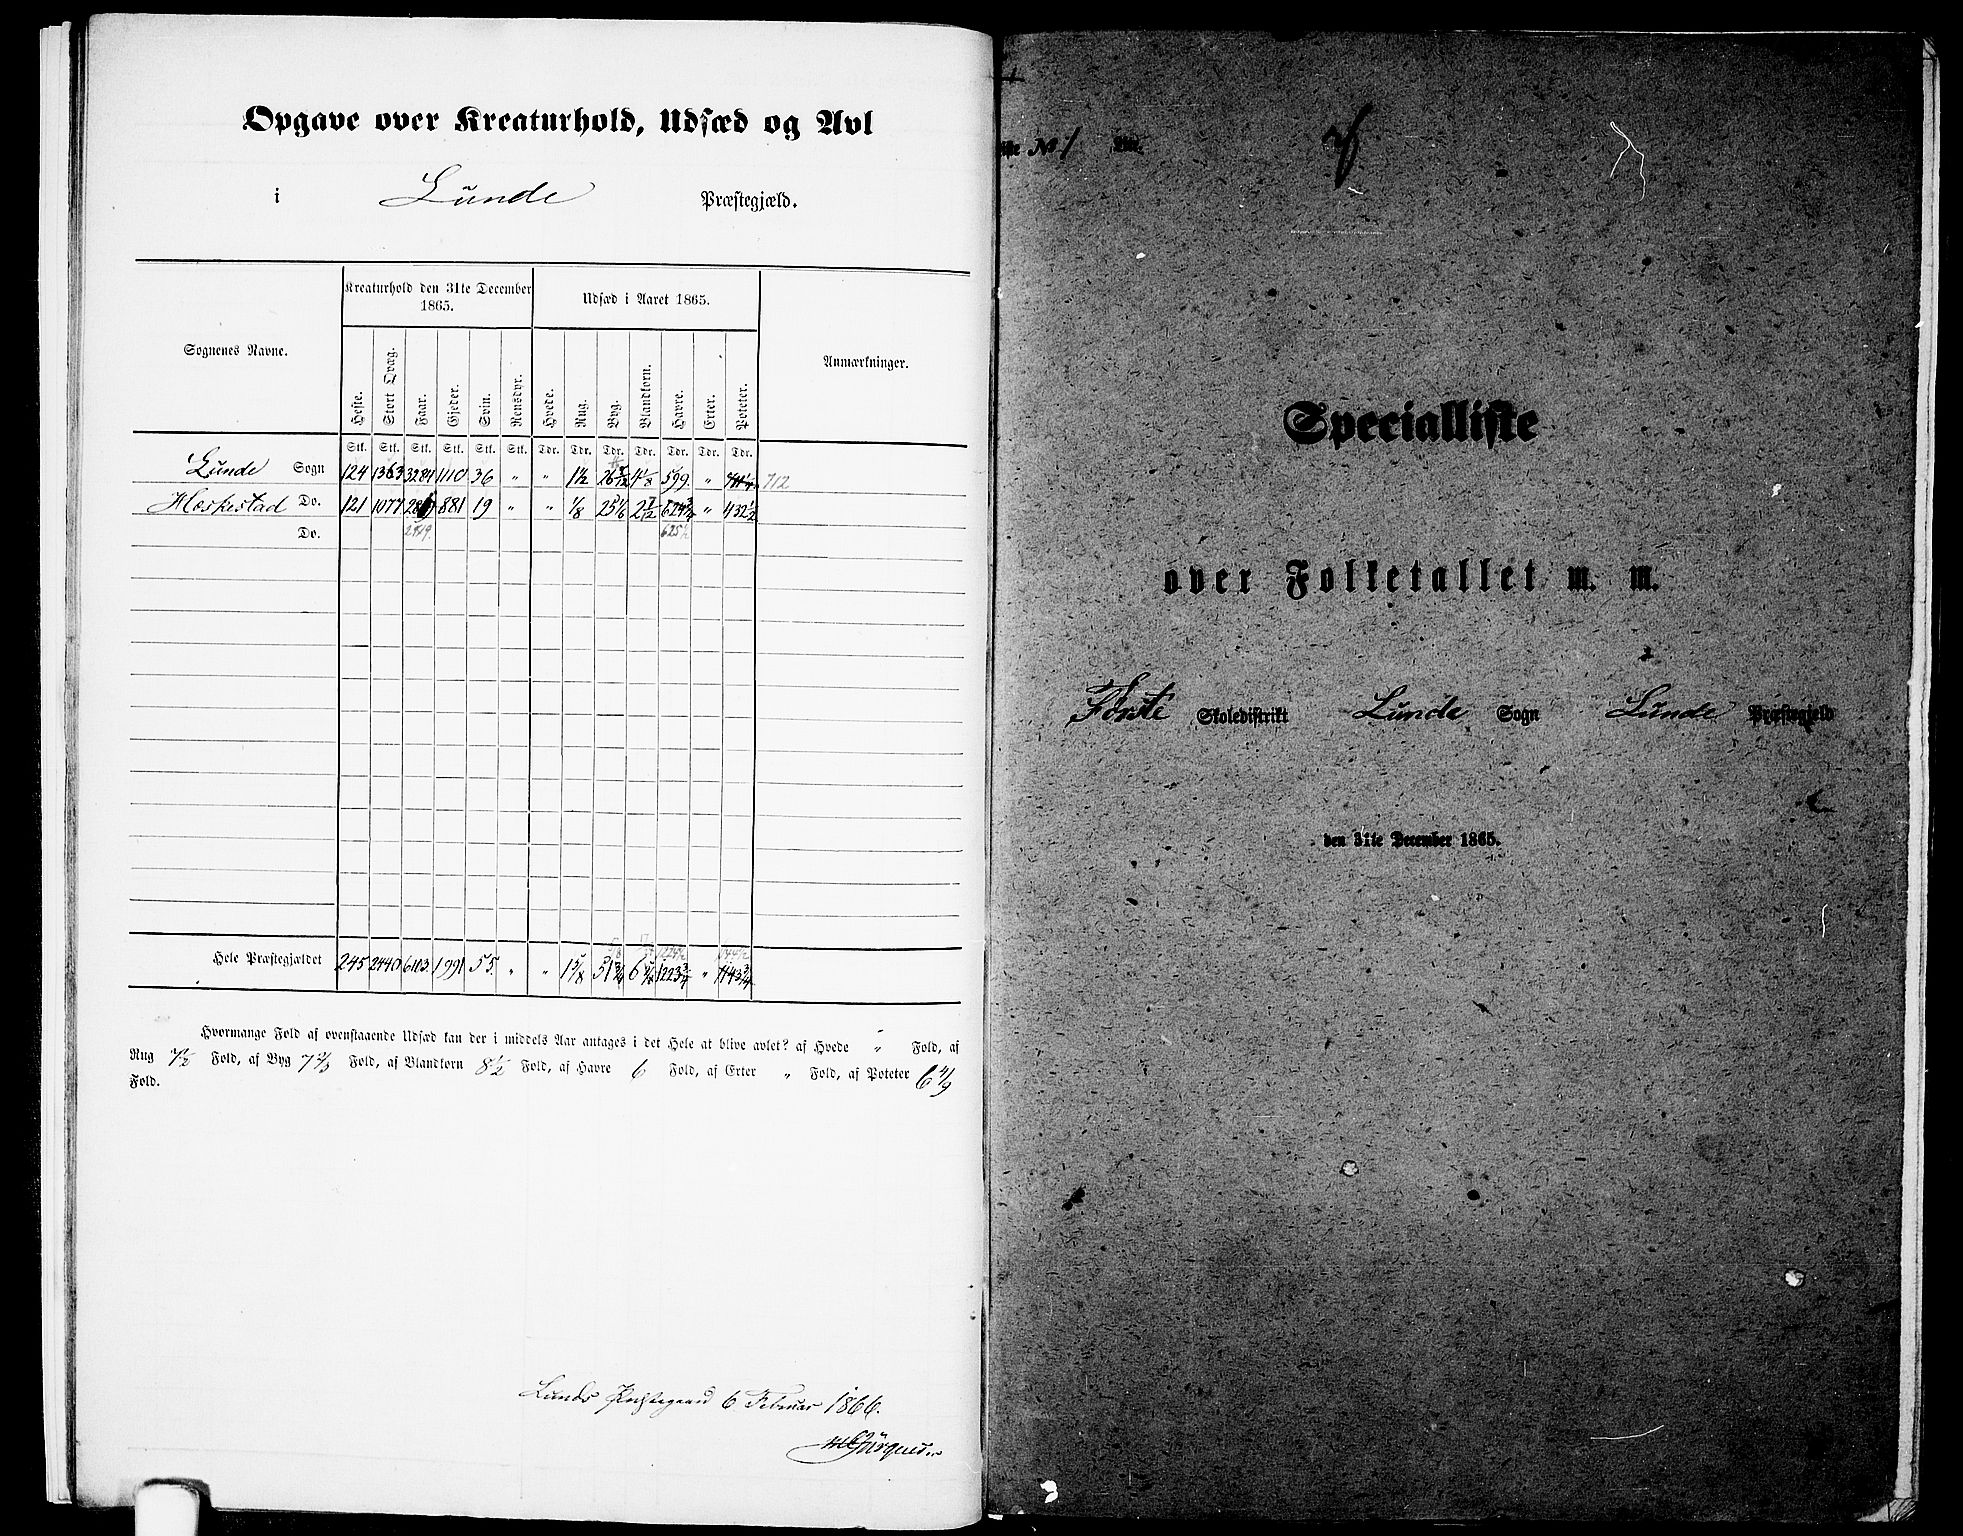 Opgave over Kreaturhold, Udsæd og Avl
i Lunde Præstegjæld.
Sognenes Navne. Kreaturhold den 31te December 1865. Udsæd i Aaret 1865. Anmærkninger.
Heste. Stort Qvæg. Faar. Gjeder. Svin. Rensdyr. Hvede. Rug. Byg. Blandkorn. Havre. Erter. Poteter.
Stk. Stk. Stk. Stk. Stk. Stk. Tdr. Tdr. Tdr. Tdr. Tdr. Tdr. Tdr.
Lunde Sogn 124 1363 3284 1110 36 " " 1½ 599. " 712
Heskestad Do. 121 1077 881 19 " " ⅛ 25⅙ " 432½
Do. 2819. 625½
Hele Præstegjældet 245 2440 6103. 1991 55. " " 1⅝ 1223¾ " 1143¾
Hvormange Fold af ovenstaaende Udsæd kan der i middels Aar antages i det Hele at blive avlet? af Hvede " Fold, af
Rug 7½ Fold, af Byg 7⅔ Fold, af Blandkorn 8½ Fold, af Havre 6 Fold, af Erter " Fold, af Poteter 6 4/9
Fold.
Lunds Præstegaard 6 Februar 1866.
No 1
Specialliste
over Folketallet m. m.
Første Skoledistrikt Lunde Sogn Lunde Præstegjeld
den 31te December 1865.